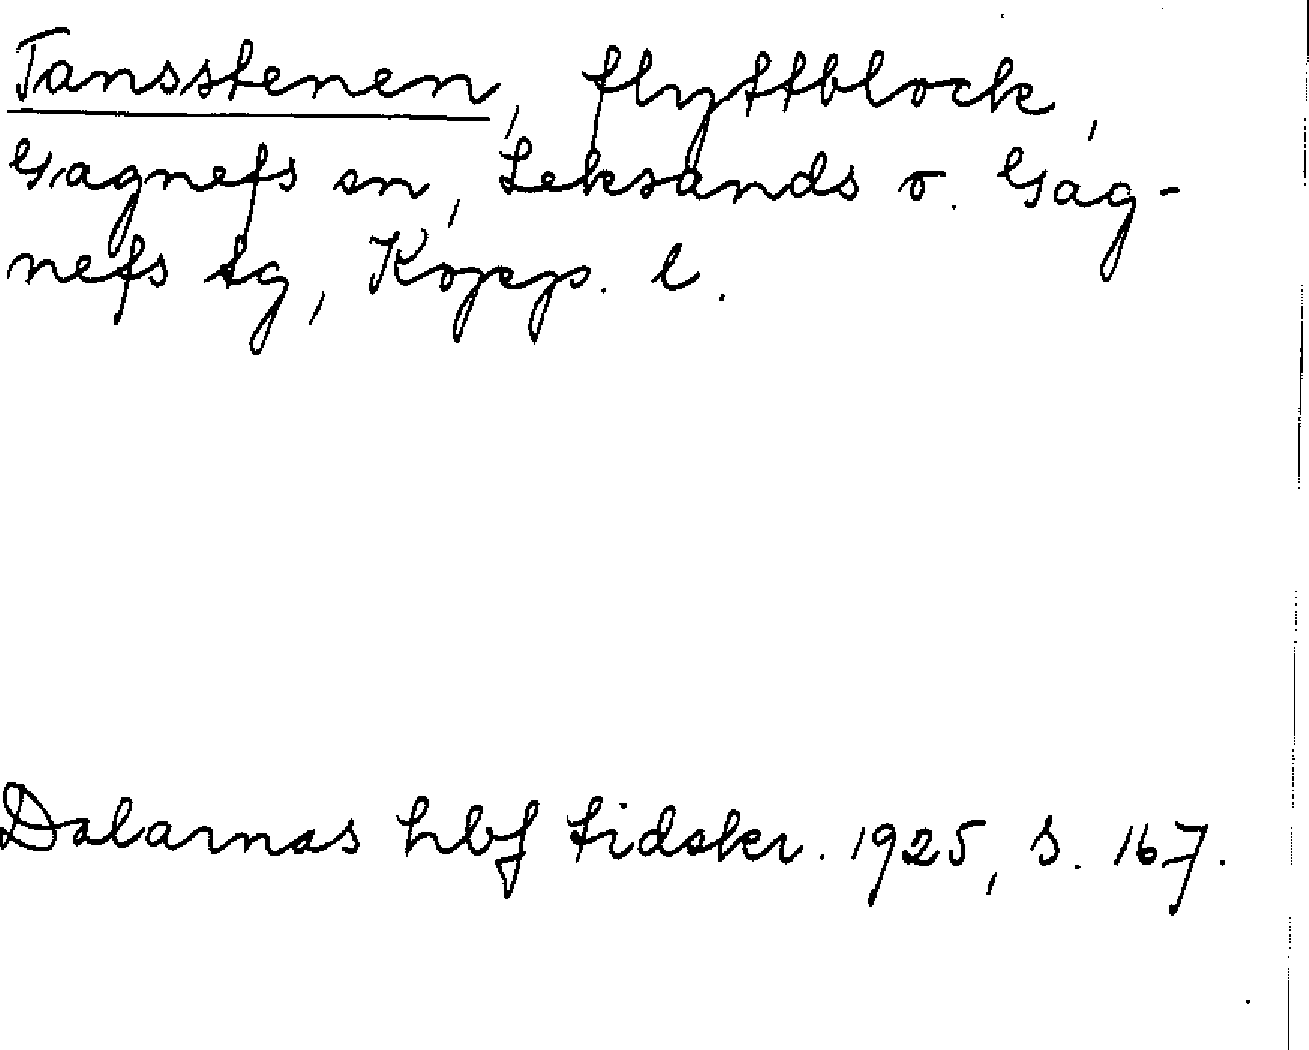 Tansstenen, flyttblock,
Gagnefs sn, Leksands o. Gag-
nefs tg, Kopp. l.
Dalarnas hbf tidskr. 1925, s. 167.